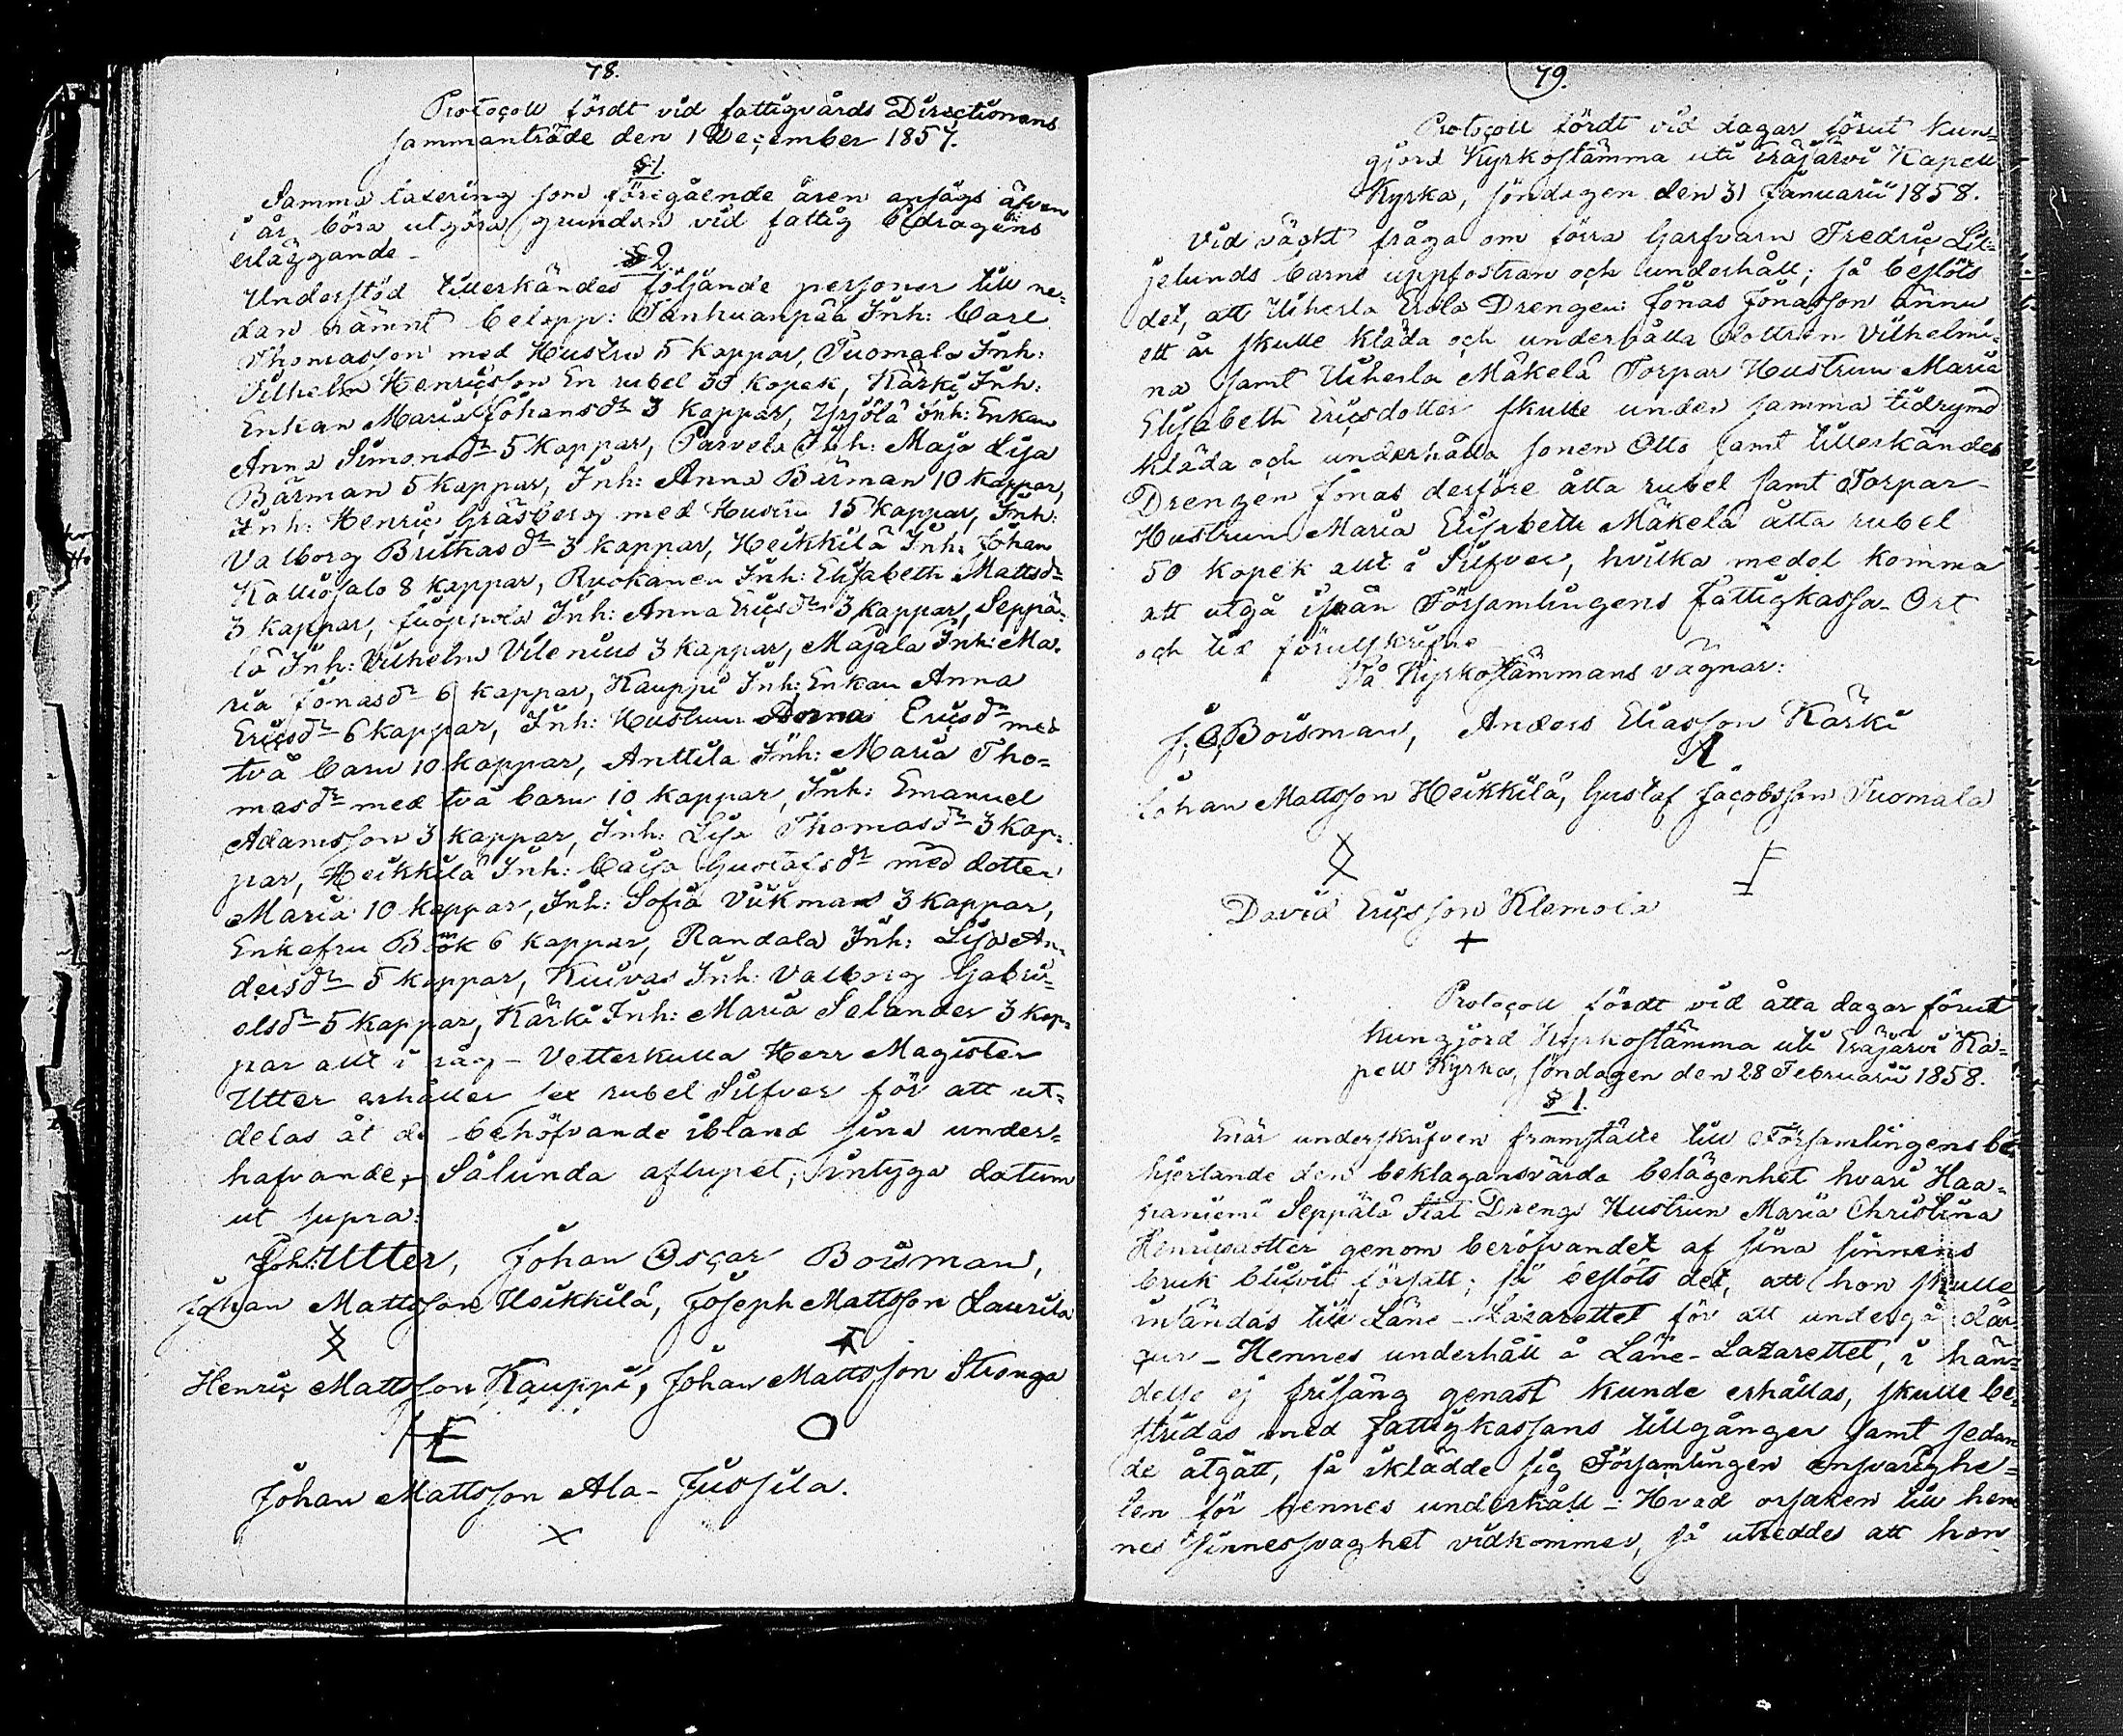 78.
Protocoll fördt vid fattigvårds Directionens
sammanträde den 1 December 1857.
§ 1.
Samma taxering som föregående åren ansågs äfven
i år böra utgöra grunden vid fattig bidragens
erläggande -
§ 2.
Understöd tillerkändes följande personer till ne-
dan nämnt belopp: Tanhuanpää Inh: Carl
Thomasson med Hustru 5 kappar, Tuomala Inh:
Vilhelm Henricsson En rubel 30 kopek, Kärki Inh:
Enkan Maria Johansdr 3 kappar, Yrjölä Inh: Enkan
Anna Simonsdr 5 kappar, Parvela Inh: Maja Lisa
Bärman 5 kappar, Inh: Anna Bärman 10 kappar,
Inh: Henric Gräsberg med Hustru 15 kappar, Inh:
Valborg Bruthasdr 3 kappar, Heikkilä Inh: Johan
Kalliosalo 8 kappar, Ruokanen Inh: Elisabeth Mattsdr
3 kappar, Juoppola Inh: Anna Ericsdr 3 kappar, Seppä-
lä Inh: Vilhelm Vilenius 3 kappar, Majala Inh: Ma-
ria Jonasdr 6 kappar, Kauppi Inh: Enkan Anna
Ericsdr 6 kappar, Inh: Hustrun Anna Ericsdr med
två barn 10 kappar, Anttila Inh: Maria Tho-
masdr med två barn 10 kappar, Inh: Emanuel
Adamsson 3 kappar, Inh: Lisa Thomasdr 3 kap-
par, Heikkilä Inh: Caisa Gustafsdr med dotter
Maria 10 kappar, Inh: Sofia Vikman 3 kappar,
Enkefru Böök 6 kappar, Randala Inh: Lisa An-
dersdr 5 kappar, Kuivas Inh: Valborg Gabri-
elsdr 5 kappar, Kärki Inh: Maria Selander 3 kap-
par allt i råg - Vetterkulla Herr Magister
Utter erhåller sex rubel Silfver för att ut-
delas åt de behöfvande ibland sina under-
hafvande, - Sålunda aflupet, intyga datum
ut supra:
Joh: Utter, Johan Oscar Boisman,
Johan Mattsson Heikkilä, Joseph Mattsson Laurila
Henric Mattsson Kauppi, Johan Mattsson Stronga
Johan Mattsson Ala-Jussila.
79.
Protocoll fördt vid dagar förut kun-
gjord Kyrkostämma uti Eräjärvi Kapell
Kyrka, söndagen den 31 Januarii 1858.
Vid väckt fråga om förra Garfvarn Fredric Lil-
jelunds barns uppfostran och underhåll; så beslöts
det, att Uiherla Erola Drengen: Jonas Jonasson ännu
ett år skulle kläda och underhålla dottren Vilhelmi-
na samt Uiherla Mäkelä Torpar Hustrun Maria
Elisabeth Ericsdotter skulle under samma tidrymd
kläda och underhålla sonen Otto samt tillerkändes
Drengen Jonas derföre åtta rubel samt Torpar-
Hustrun Maria Elisabeth Mäkelä åtta rubel
50 kopek allt i Silfver, hvilka medel komma
att utgå ifrån Församlingens Fattigkassa - Ort
och tid förutskrifne
På Kyrkostämmans vägnar:
J. O. Boisman, Anders Eliasson Kärki
Johan Mattsson Heikkilä, Gustaf Jacobsson Tuomala
David Ericsson Klemola
Protocoll fördt vid åtta dagar förut
kungjord Kyrkostämma uti Eräjärvi Ka-
pell Kyrka, söndagen den 28 Februarii 1858.
§ 1.
Enär underskrifven framstälte till Församlingens be-
hjertande den beklagansvärda belägenhet hvari Haa-
paniemi Seppälä Stat Drengs Hustrun Maria Christina
Henricsdotter genom beröfvandet af sina sinnens
bruk blifvit försatt; så beslöts det, att hon skulle
insändas till Läns-Lazarettet för att undergå där
cur - Hennes underhåll å Läne-Lazarettet, i hän-
delse ej frisäng genast kunde erhållas, skulle be-
stridas med fattigkassans tillgånger samt sedan
de åtgått, så iklädde sig Församlingen ansvarighe-
ten för hennes underhåll - Hvad orsaken till hen-
nes sinnessvaghet vidkommer, så utreddes att hon